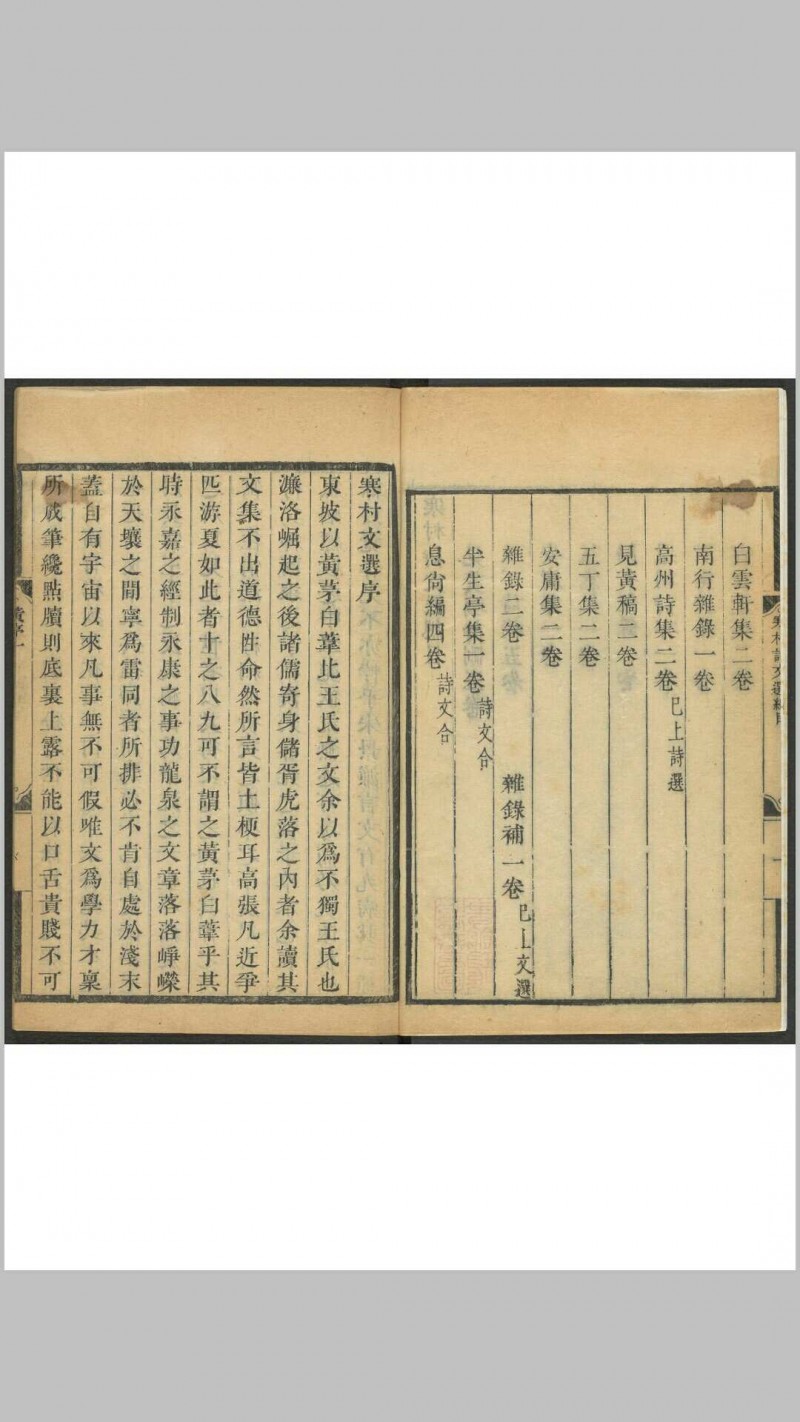 白雲軒集二卷
南行雜錄一卷
高州詩集二卷 已上詩選
見黃稿二卷
五丁集二卷
安庸集二卷
雜錄二卷 雜錄補一卷 已上文選
半生亭集一卷 詩文合
息尚編四卷 詩文合
寒村文選序
東坡以黃茅白葦比王氏之文余以爲不獨王氏也
濂洛崛起之後諸儒寄身儲胥虎落之內者余讀其
文集不出道德性命然所言皆土梗耳高張凡近爭
匹游夏如此者十之八九可不謂之黃茅白葦乎其
時永嘉之經制永康之事功龍泉之文章落落崢嶸
於天壤之間寧爲雷同者所排必不肯自處於淺末
蓋自有宇宙以來凡事無不可假唯文爲學力才稟
所成筆纔點牘則底裏上露不能以口舌貴賤不可